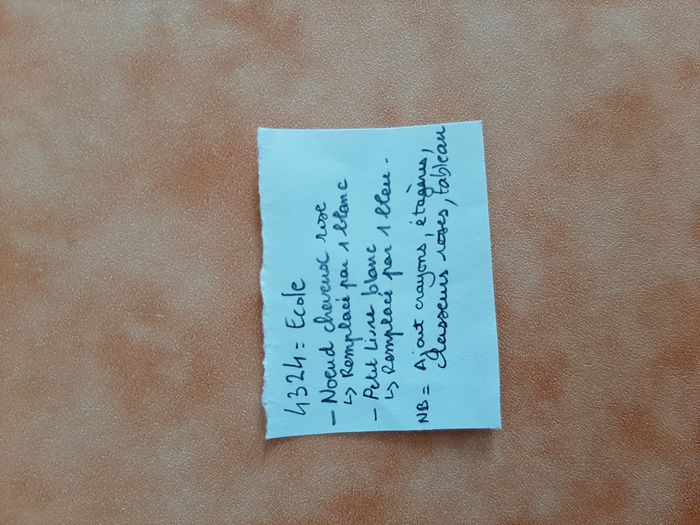 4324 = Ecole
- Noeud cheveux rose
↳ Remplacé par 1 blanc
- Petit livre blanc
↳ Remplacé par 1 bleu.
NB = Ajout crayons, étagères,
classeurs roses, tableau